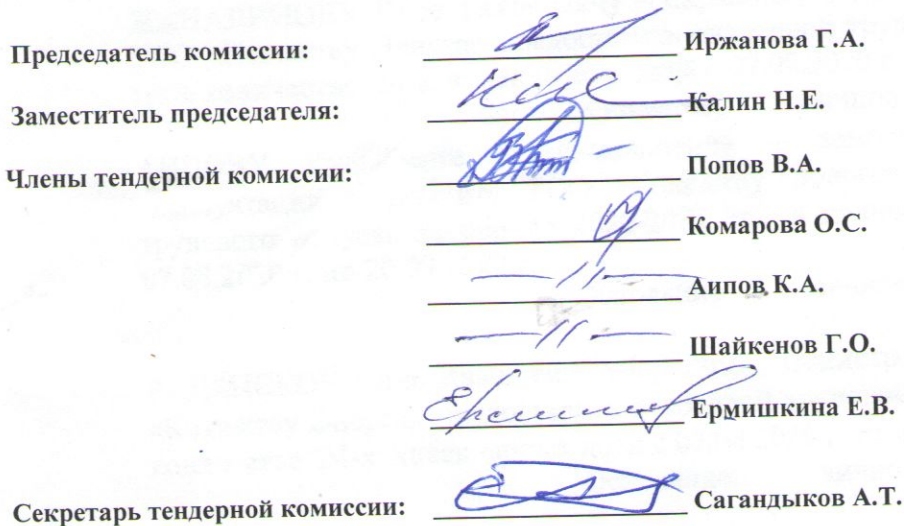 Председатель комиссии: Иржанова Г.А.
Заместитель председателя: Калин Н.Е.
Члены тендерной комиссии: Попов В.А.
Комарова О.С.
—//— Аипов К.А.
—//— Шайкенов Г.О.
Ермишкина Е.В.
Секретарь тендерной комиссии: Сагандыков А.Т.